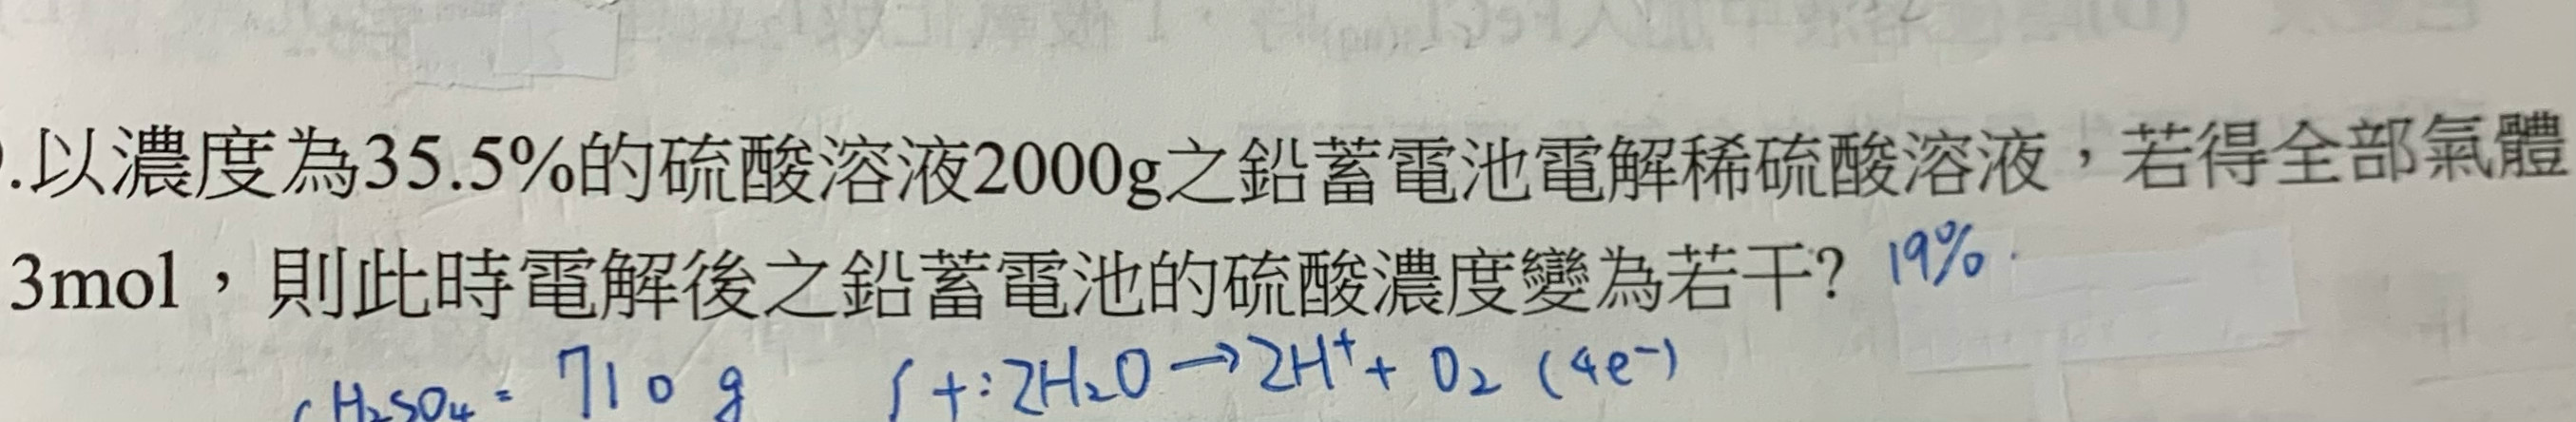 .以濃度為35.5%的硫酸溶液2000g之鉛蓄電池電解稀硫酸溶液，若得全部氣體
3mol，則此時電解後之鉛蓄電池的硫酸濃度變為若干? 19%.
H₂SO₄ = 710 g  +: 2H₂O → 2H⁺ + O₂ (4e⁻)